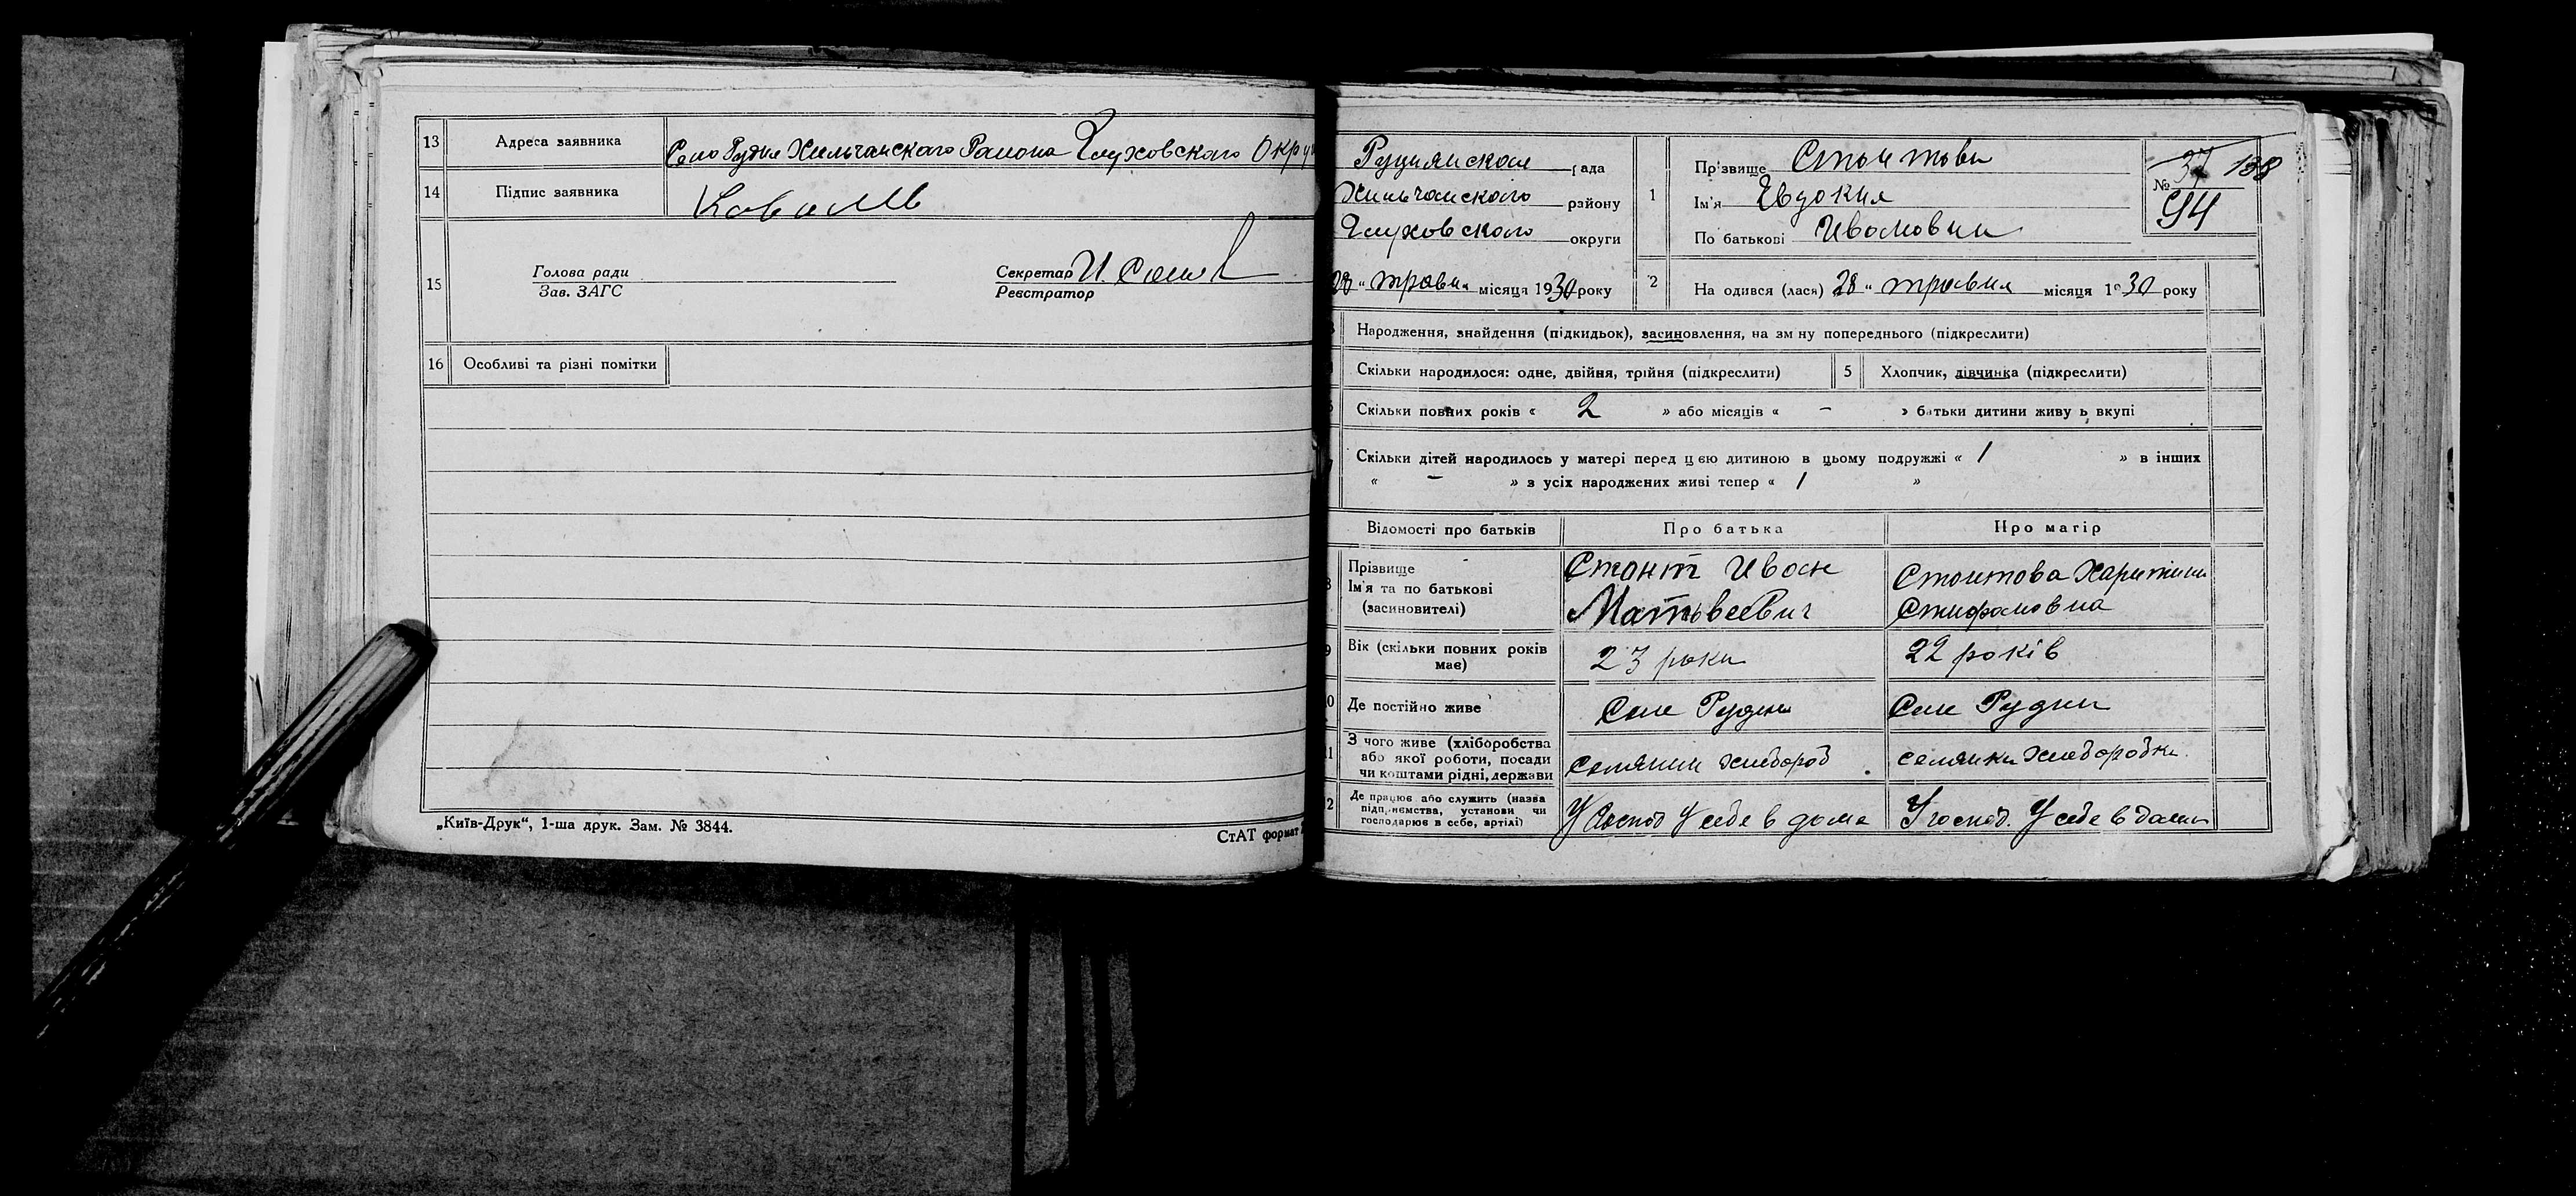 13 Адреса заявника Село Рудня Хильчанскаго Района Глуховскаго Окру
14 Підпис заявника Коваль
15 Голова ради
Зав. ЗАГС
Секретар И.
Реєстратор
16 Особливі та різні помітки
„Київ-Друк“, 1-ша друк. Зам. № 3844.
СтАТ формат
рада
Хильчанскаго району
Глуховскаго округи
28 " травня місяця 1930 року
1 Прізвище
Ім'я Евдокия
По батькові Ивановна
№ 37 188
94
2 На одився (лася) 28 " травня місяця 1930 року
Народження, знайдення (підкидьок), засиновлення, на зм ну попереднього (підкреслити)
Скільки народилося: одне, двійня, трійня (підкреслити)
5 Хлопчик, дівчинка (підкреслити)
Скільки повних років « 2 » або місяців « - » батьки дитини живу ь вкупі
Скільки дітей народилось у матері перед цею дитиною в цьому подружжі « 1 » в інших
« - » з усіх народжених живі тепер « 1 »
Відомості про батьків Про батька Про матір
Прізвище
Ім'я та по батькові
(засиновителі)
Иван
Матвеевич
Харитина
Стифановна
Вік (скільки повних років
має)
23 роки
22 років
Де постійно живе
Село Рудня
Село Рудня
З чого живе (хліборобства
або якої роботи, посади
чи коштами рідні, держави
селянин хлебороб
селянка хлеборобка
Де працює або служить (назва
підприємства, установи чи
господарює в себе, артілі)
У господ. У себе в доме
У господ. У себе в доме